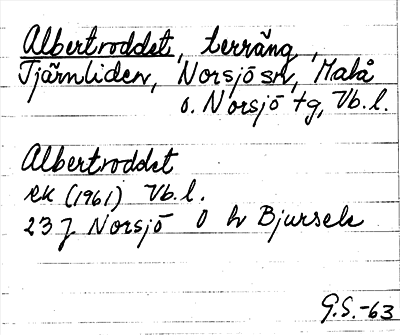 Albertroddet, terräng,
Tjärnliden, Norsjö sn, Malå
o. Norsjö tg, Vb. l.
Albertroddet
RK (1961) Vb. l.
23 J Norsjö O h Bjursele
G.S. -63